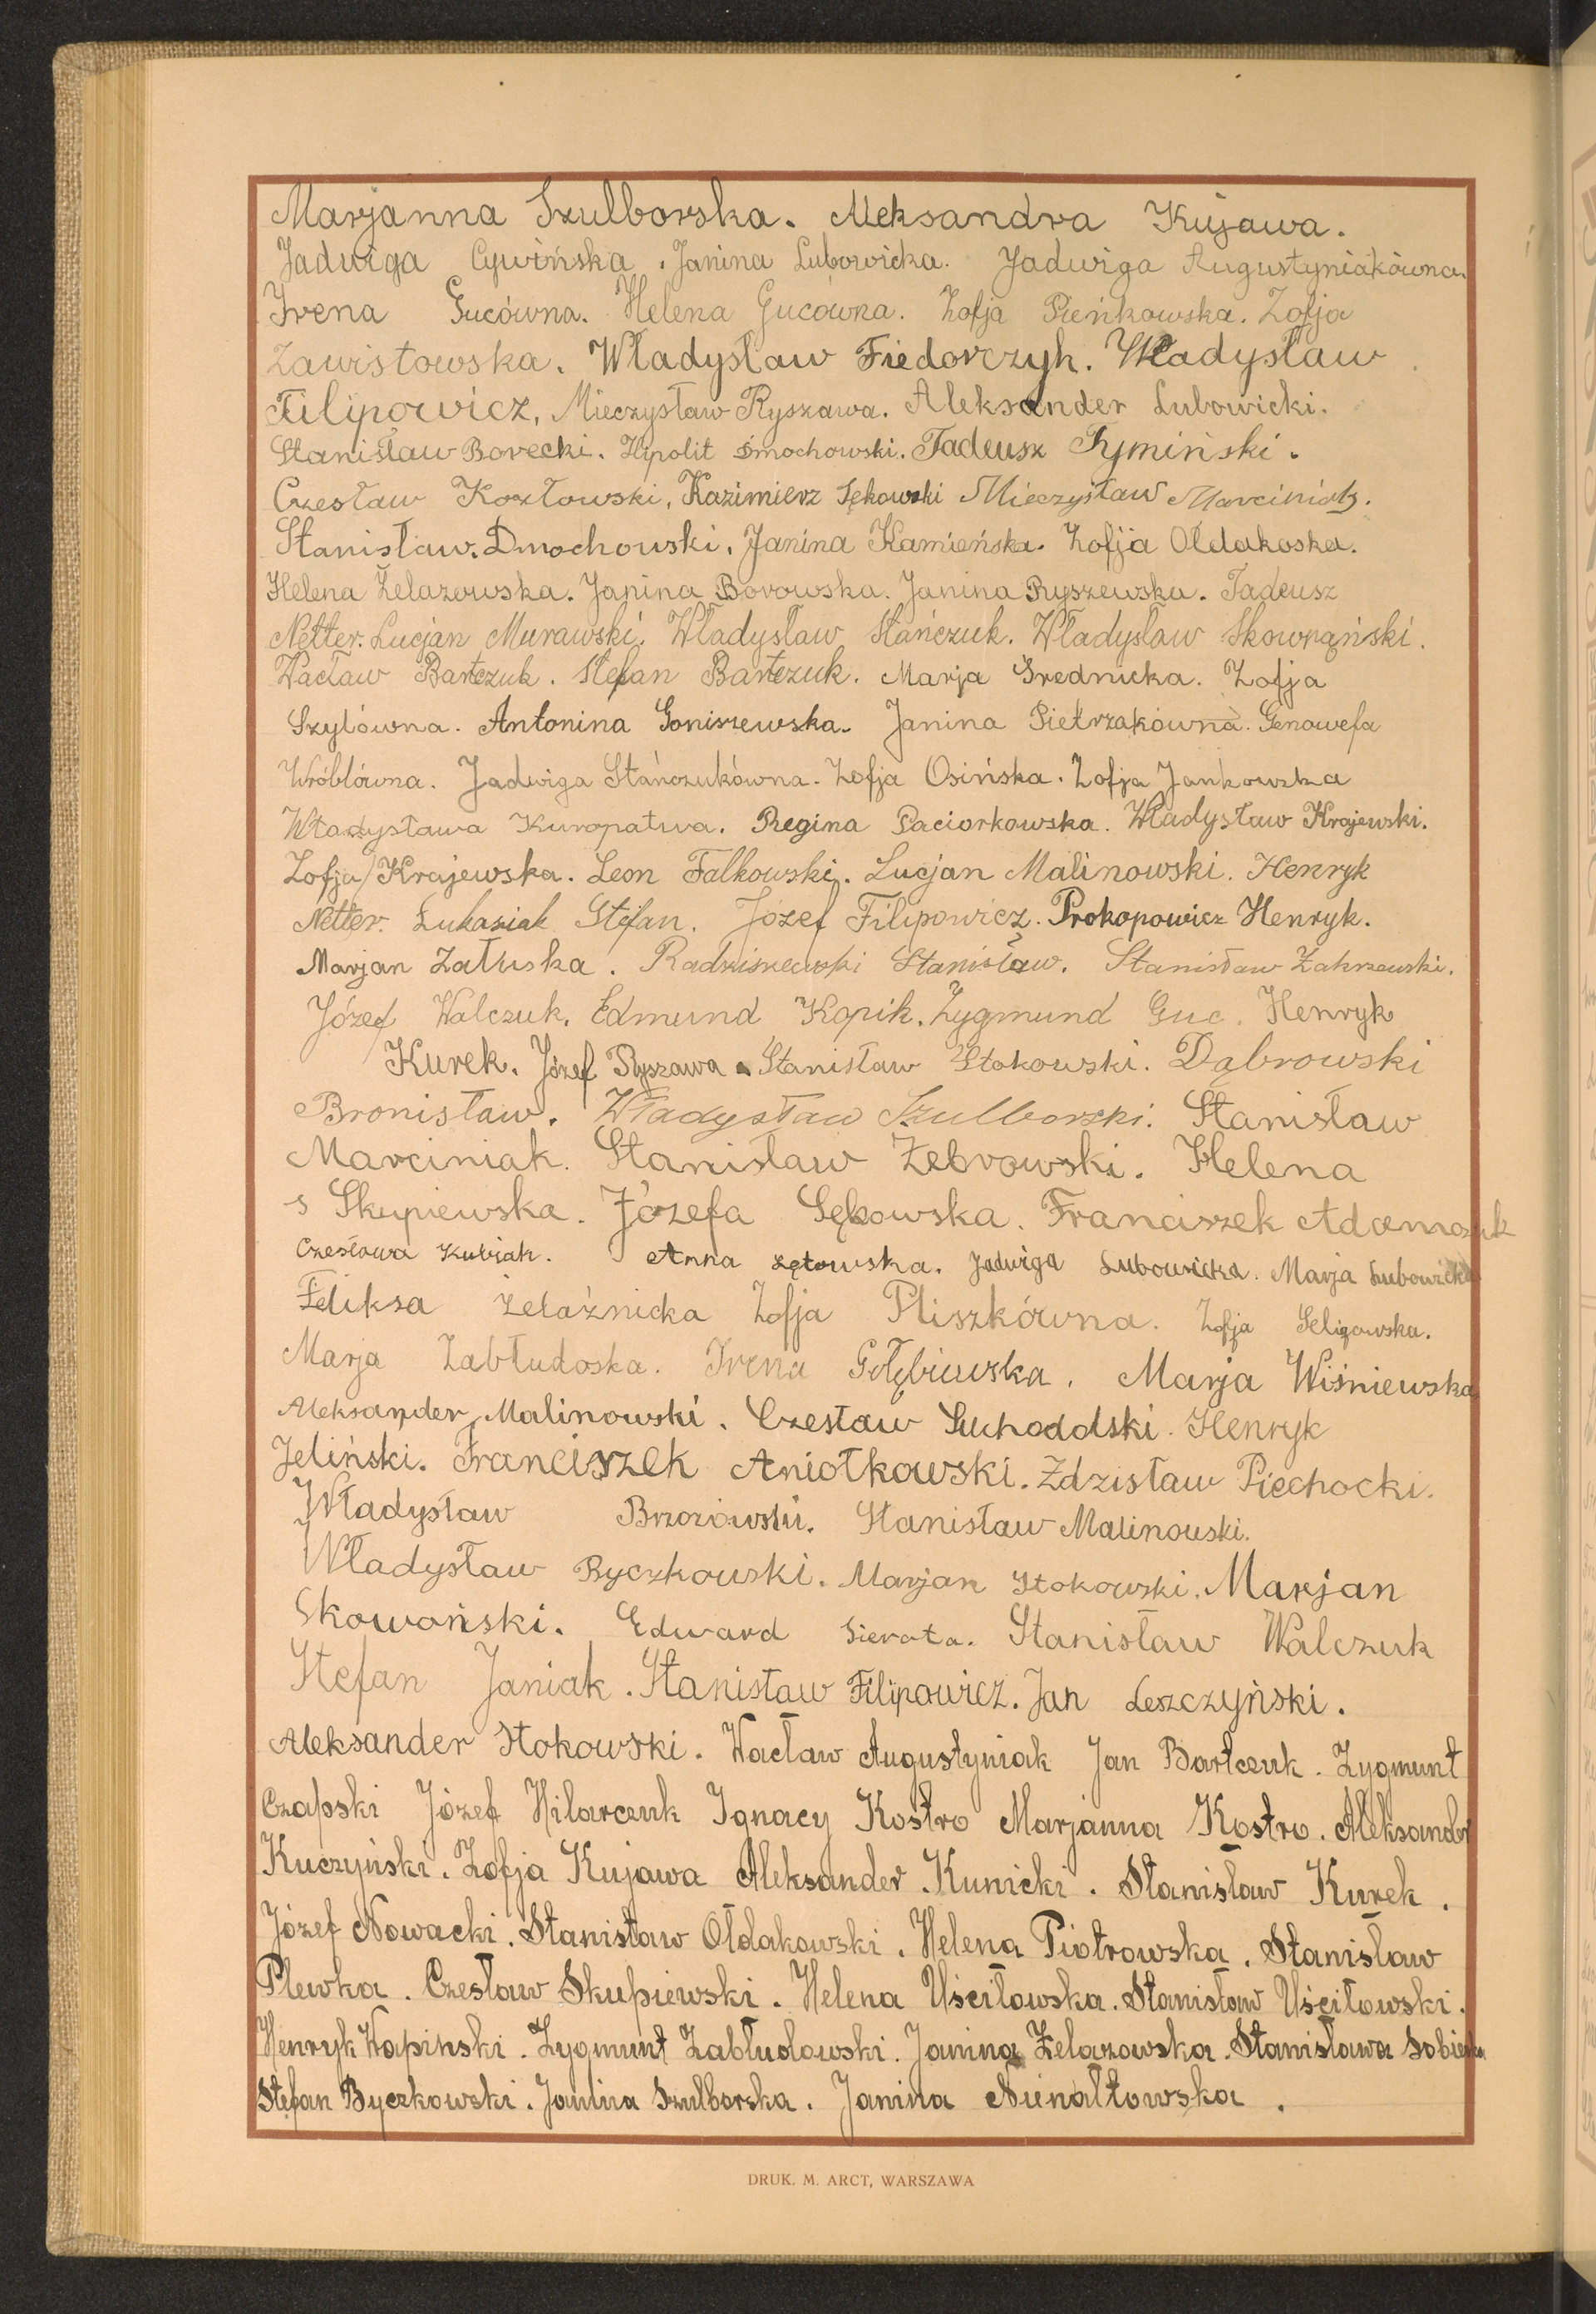 Marjanna Szulborska. Aleksandra Kujawa.
Jadwiga Cywińska. Janina Lubowicka. Jadwiga Augustyniakówna.
Irena Gucówna. Helena Gucówna. Zofja Pieńkowska. Zofja
Zawistowska. Władysław Fiedorczyk. Władysław
Filipowicz, Mieczysław Ryszawa. Aleksander Lubowicki.
Stanisław Borecki. Hipolit Dmochowski. Tadeusz Tymiński.
Czesław Kozłowski, Kazimierz Sękowski Mieczysław Marciniak.
Stanisław. Dmochowski. Janina Kamieńska. Zofja Ołdakoska.
Helena Żelazowska. Janina Borowska. Janina Ryszewska. Tadeusz
Netter. Lucjan Murawski. Władysław Stańczuk. Władysław Skowrąński.
Wacław Bartczuk. Stefan Bartczuk. Marja Średnicka. Zofja
Szylówna. Antonina Goniszewska. Janina Pietrzakówna. Genowefa
Wróblówna. Jadwiga Stańczukówna. Zofja Osińska. Zofja Jankowska
Władysława Kuropatwa. Regina Paciorkowska. Władysław Krajewski.
Zofja Krajewska. Leon Falkowski. Lucjan Malinowski. Henryk
Netter. Łukasiak Stefan. Józef Filipowicz. Prokopowicz Henryk.
Marjan Załuska. Radziszewski Stanisław. Stanisław Zakrzewski.
Józef Walczuk. Edmund Kopik. Zygmund Guc. Henryk
Kurek. Józef Ryszawa. Stanisław Stokowski. Dąbrowski
Bronisław. Władysław Szulborski. Stanisław
Marciniak. Stanisław Żebrowski. Helena
Skupiewska. Józefa Sękowska. Franciszek Adamczuk
Czesława Kubiak. Anna Zętowska. Jadwiga Lubowicka. Marja Lubowicka
Feliksa Żelaźnicka Zofja Pliszkówna. Zofja Seligowska.
Marja Zabłudoska. Irena Gołębiewska. Marja Wiśniewska
Aleksander Malinowski. Czesław Suchoddski. Henryk
Jeliński. Franciszek Aniołkowski. Zdzisław Piechocki.
Władysław Brzozowski. Stanisław Malinowski.
Władysław Byczkowski. Marjan Stokowski. Marjan
Skowoński. Edward Sierota. Stanisław Walczuk
Stefan Janiak. Stanisław Filipowicz. Jan Leszczyński.
Aleksander Stokowski. Wacław Augustyniak Jan Bartczuk. Zygmunt
Czapski Józef Hilarczuk Ignacy Kostro Marjanna Kostro. Aleksander
Kuczyński. Zofja Kujawa Aleksander Kunicki. Stanisław Kurek.
Józef Nowacki. Stanisław Ołdakowski. Helena Piotrowska. Stanisław
Plewka. Czesław Skupiewski. Helena Uściłowska. Stanisław Uściłowski.
Henryk Wapinski. Zygmunt Zabłudowski. Janina Żelazowska. Stanisława
Stefan Byczkowski. Janina Szulborska. Janina Nienałtowska.
DRUK. M. ARCT, WARSZAWA